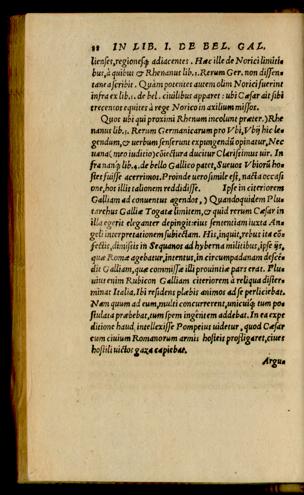 88 IN LIB. I. DE BEL. GAL.
lienses, regionesq́; adiacentes. Hæc ille de Norici limiti-
bus, à quibus & Rhenanus lib. 1. Rerum Ger. non dissen-
tanea scribit. Quàm potentes autem olim Norici fuerint
infra ex lib. 1. de bel. ciuilibus apparet: ubi Cæsar ait sibi
trecentos equites à rege Norico in auxilium missos.
Quot ubi qui proximi Rhenum incolunt præter.) Rhe
nanus lib. 1. Rerum Germanicarum pro Vbi, Vbij hic le-
gendum, & uerbum senserunt expungendũ opinatur, Nec
uana (meo iuditio) cõiectura ducitur Clarissimus uir. In
fra nanq́; lib. 4. de bello Gallico patet, Sueuos Vbiorũ ho-
stes fuisse acerrimos. Proinde uero simile est, nacta occasi
one, hos illis talionem reddidisse. Ipse in citeriorem
Galliam ad conuentus agendos,) Quandoquidem Plu-
tarchus Galliæ Togatæ limitem, & quid rerum Cæsar in
illa egerit eleganter depingit: eius sententiam iuxta An-
geli interpretationem subiectam. His, inquit, rebus ita cõ-
fectis, dimissis in Sequanos ad hyberna militibus, ipse ijs,
quæ Romæ agebatur, intentus, in circumpadanam descẽ-
dit Galliam, quæ commissæ illi prouintiæ pars erat. Flu-
uius enim Rubicon Galliam citeriorem à reliqua dister-
minat Italia. Ibi residens plæbis animos ad se perliciebat.
Nam quum ad eum, multi concurrerent, unicuiq; tum po-
stulata præbebat, tum spem ingẽtem addebat. In ea expe
ditione haud, intellexisse Pompeius uidetur, quod Cæsar
cum ciuium Romanorum armis hosteis profligaret, ciues
hostili uictor gaza capiebat.
Argu-